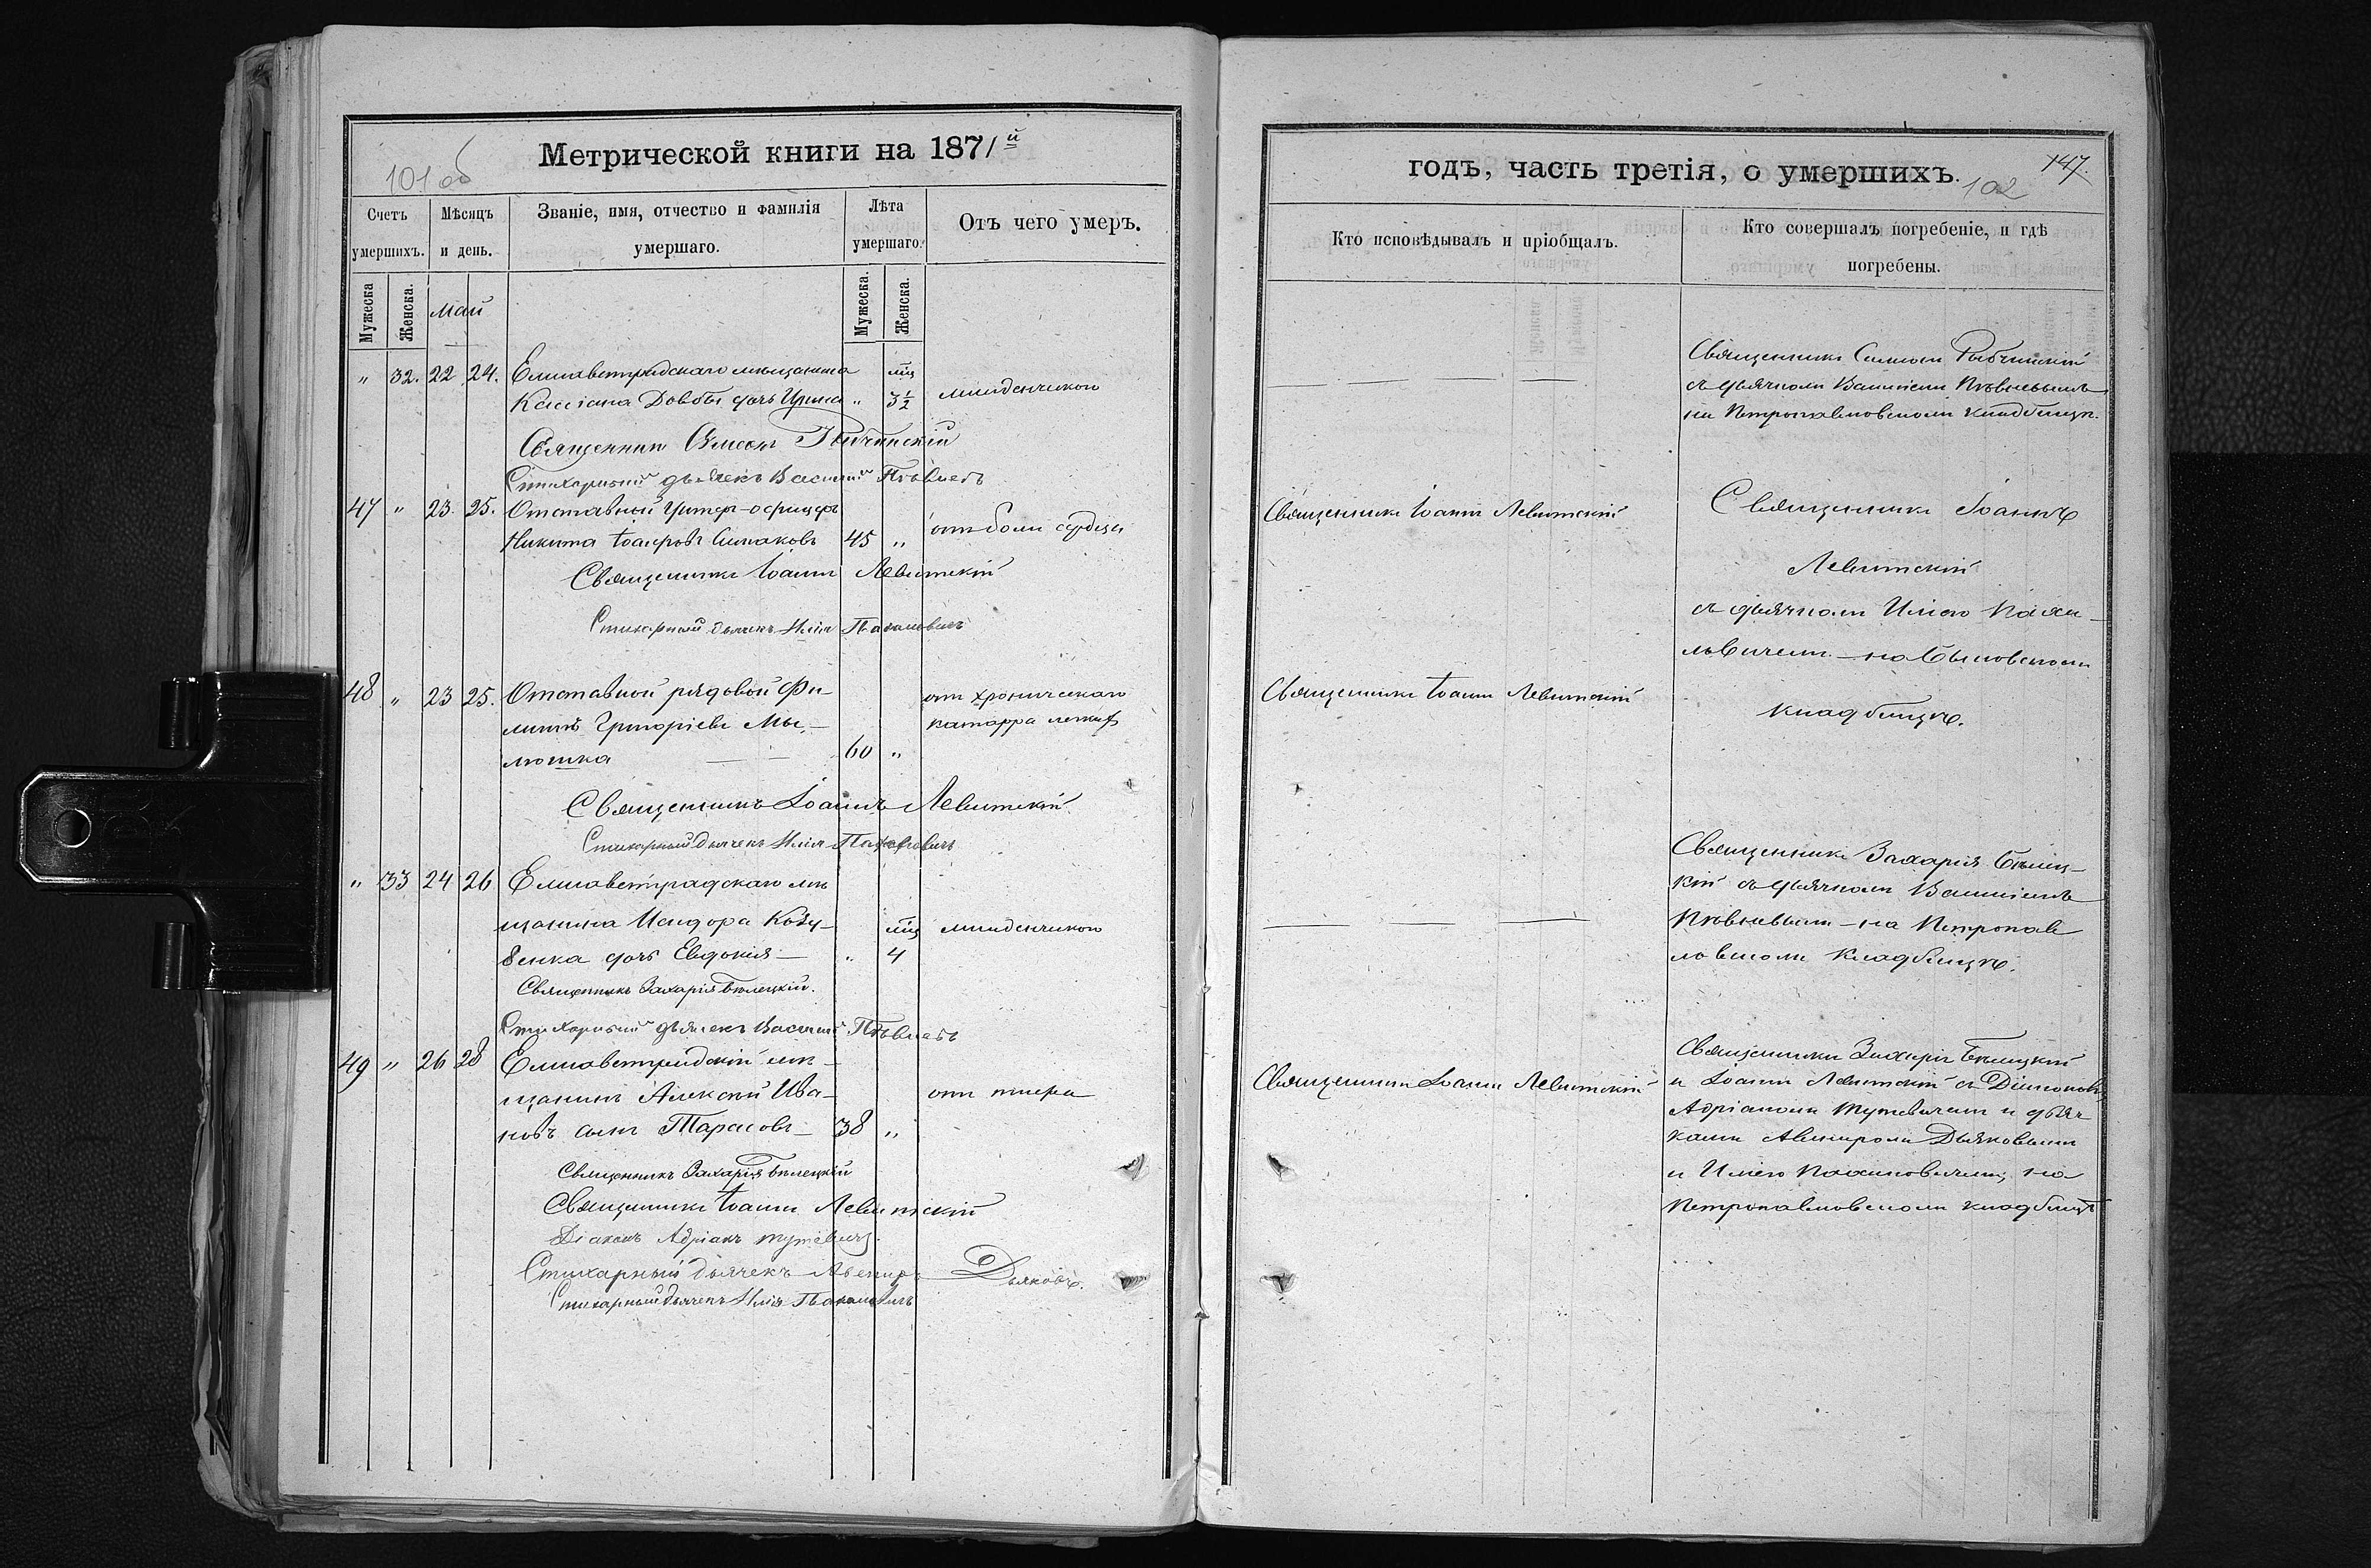 Метрической книги на 1871й
101 об
Счетъ умершихъ.
Мѣсяцъ и день.
Званіе, имя, отчество и фамилія умершаго.
Лѣта умершаго.
Отъ чего умеръ.
Мужеска
Женска.
Май
Мужеска.
Женска.
" 32. 22 24. Елисаветградскаго мѣщанина мц
Кассіана Довбы дочь Ирина " 3½ младенческою
Священникъ Симеонъ
Стихарный дьячекъ Василій Пѣвневъ
47 " 23. 25. Отставный Унтеръ-офицеръ
Никита Симаковъ 45 " отъ боли сердца
Священникъ Іоаннъ Левитскій
Стихарный дьячекъ Илія Пахалевичъ
48 " 23 25. Отставной рядовой Фи- отъ хроническаго
липпъ Григоріевъ Мы- катарра легкихъ
люшка 60 "
Священникъ Іоаннъ Левитскій
Стихарный дьячекъ Илія
" 33 24 26 Елисаветградскаго мѣ
щанина Исидора Козу- мц младенческою
бенка дочь Евдокія " 4
Священникъ Захарія Бѣлецкій.
Стихарный дьячекъ Василій Пѣвневъ
49 " 26 28 Елисаветградскій мѣ-
щанинъ Алексѣй Ива- отъ тифа
новъ сынъ Тарасовъ 38 "
Священникъ Захарія Бѣлецкій
Священникъ Іоаннъ Левитскій
Діаконъ Адріанъ Тутевичъ
Стихарный дьячекъ Авениръ Дьяковъ.
Стихарный дьячекъ Илія
годъ, часть третія, о умершихъ.
147.
102
Кто исповѣдывалъ и пріобщалъ.
Кто совершалъ погребеніе, и гдѣ погребены.
Священникъ Симеонъ
съ дьячкомъ Василіемъ Пѣвневымъ
на Петропавловскомъ кладбищѣ.
Священникъ Іоаннъ Левитскій
Священникъ Іоаннъ
Левитскій
съ дьячкомъ Иліею Паха-
левичемъ — на
кладбищѣ.
Священникъ Іоаннъ Левитскій
Священникъ Захарія Бѣлец-
кій съ дьячкомъ Василіемъ
Пѣвневымъ — на Петропав
ловскомъ кладбищѣ.
Священникъ Іоаннъ Левитскій
Священники Захарія Бѣлецкій
и Іоаннъ Левитскій съ Діакономъ
Адріаномъ Тутевичемъ и дьяч
ками Авениромъ Дьяковымъ
и Иліею на
Петропавловскомъ кладбищѣ